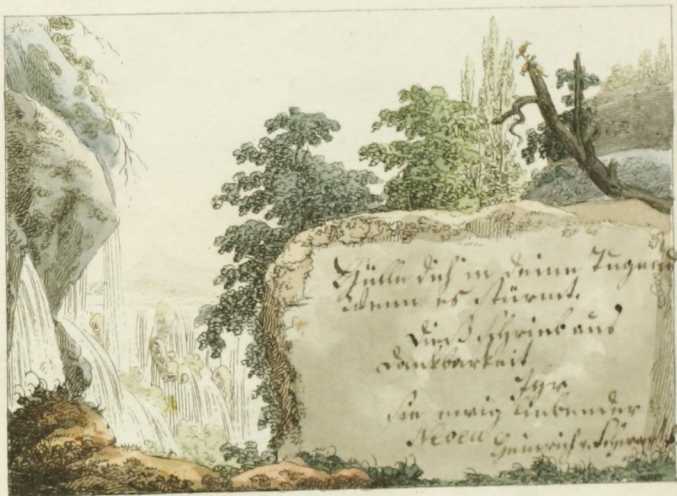 Hülle dich in deine Tugend
Wenn es stürmt.
Dieß schrieb aus
Dankbarkeit
Ihr
Sie ewig liebender
Neveu
Heinrich v.